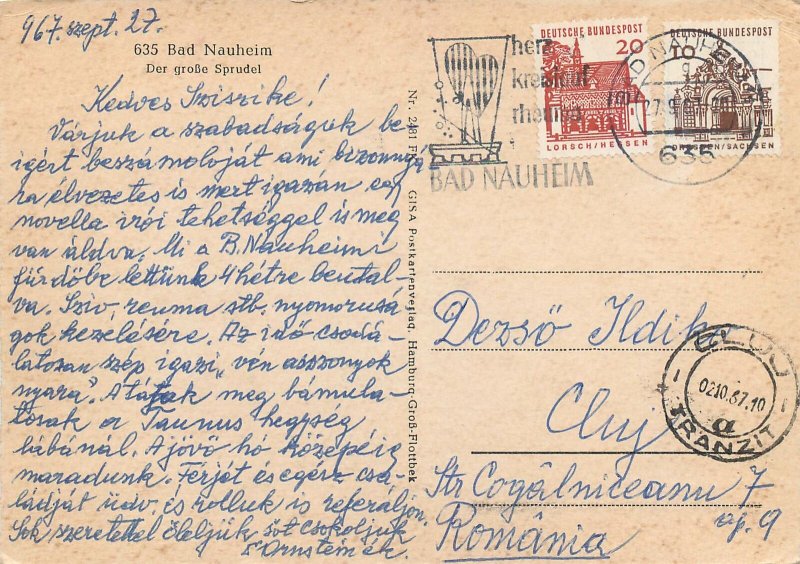 967. szept. 27.
635 Bad Nauheim
Der große Sprudel
Kedves Sziszike!
Várjuk a szabadságuk be-
igért beszámolóját ami bizonnya
ra élvezetes is mert igazán egy
novella irói tehetséggel is meg
van áldva. Mi a B. Nauheimi
fürdőbe lettünk 4 hétre beutal-
va. Sziv, reuma stb. nyomorusá
gok kezelésére. Az idő csodá-
latosan szép igazi "vén asszonyok
nyara". A tájak meg bámula-
tosak a Taunus hegység
lábánál. A jövő hó közepéig
maradunk. Férjét és egész csa-
ládját üdv. és rolluk is referáljon.
Sok szeretettel öleljük sőt csokoljuk
Ornsteinék.
Nr. 2481 GISA Postkartenverlag, Hamburg-Groß-Flottbek
herz
kreislauf
rheuma
BAD NAUHEIM
DEUTSCHE BUNDESPOST
20
LORSCH/HESSEN
DEUTSCHE BUNDESPOST
10
DRESDEN/SACHSEN
BAD NAUHEIM
27.9.67
635
Dezső Ildiko
Cluj
Str Cogălniceanu 7
ap. 9
România
CLUJ
0210.67.10
a
TRANZIT